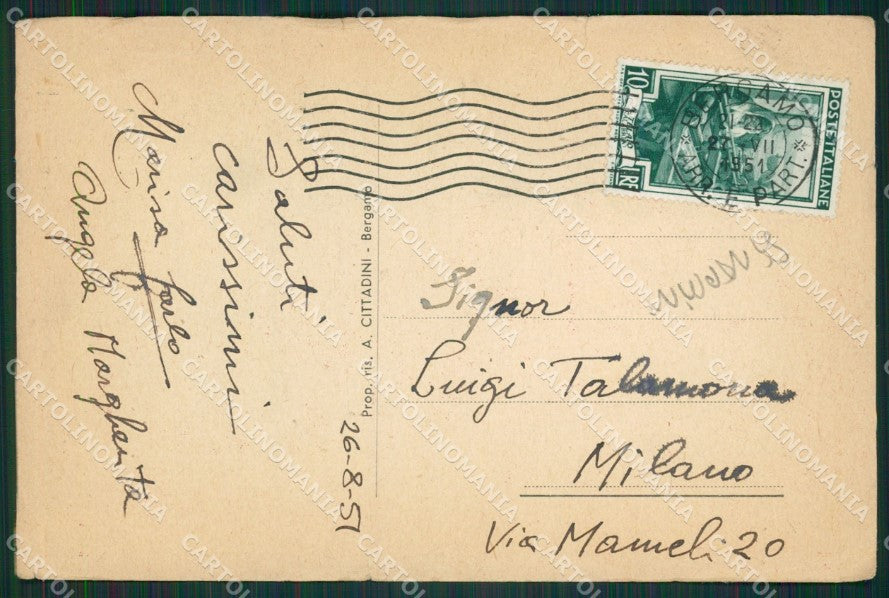 Saluti
carissimi
Marisa Carlo
Angela Margherita
26-8-51
Prop. ris. A. CITTADINI - Bergamo
10
LIRE
POSTE ITALIANE
BERGAMO
1951
PART.
Signor
Luigi Talamona
Milano
Via Mameli 20
CARTOLINOMANIA